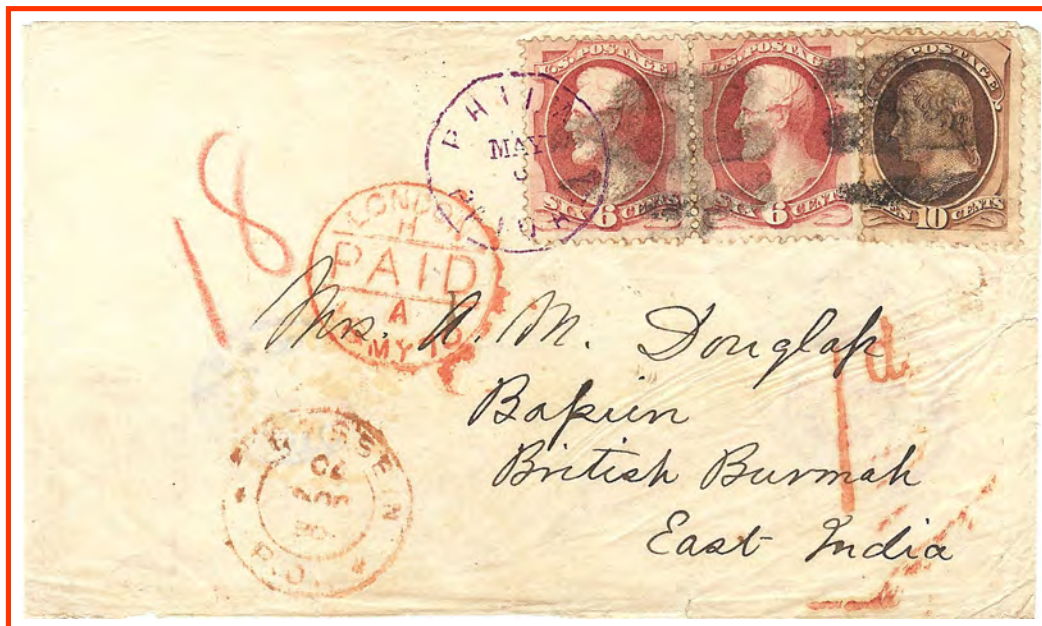 U.S. POSTAGE
SIX 6 CENTS
U.S. POSTAGE
SIX 6 CENTS
U.S. POSTAGE
TEN 10 CENTS
MAY
18
LONDON
H
PAID
A
MY 10
Mrs. A. M. Douglass
1d
Bassein
British Burmah
East India
BASSEIN
P.O.